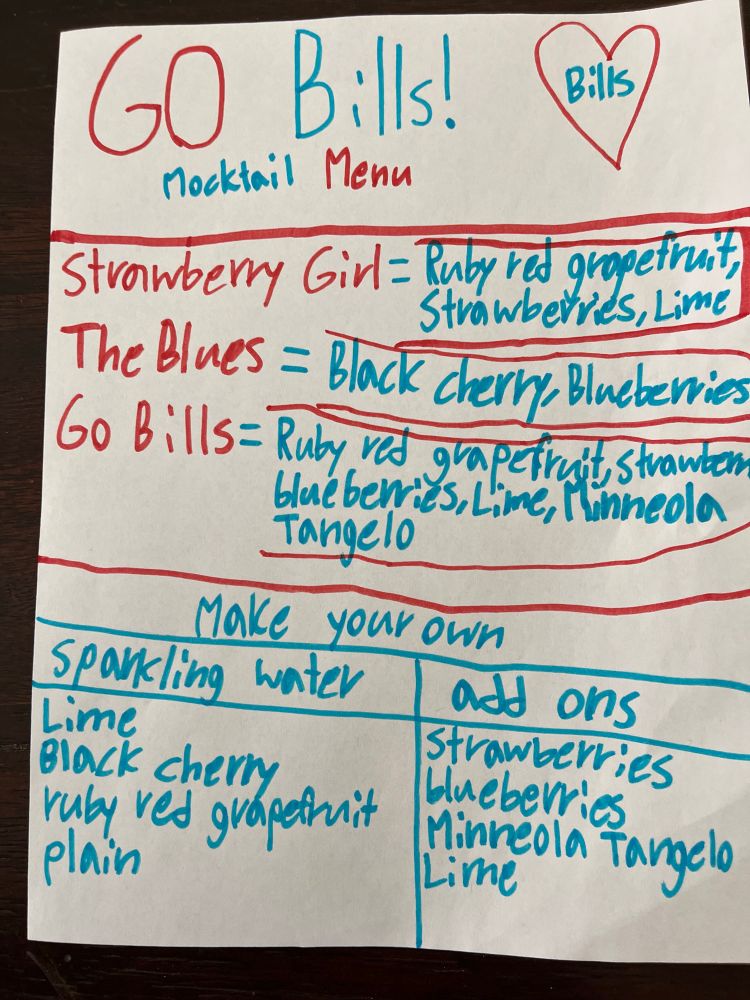 GO Bills!
Bills
Mocktail Menu
Strawberry Girl = Ruby red grapefruit,
Strawberries, Lime
The Blues = Black cherry, Blueberries
Go Bills = Ruby red grapefruit, strawberr
blueberries, Lime, Minneola
Tangelo
Make your own
Sparkling water
add ons
Lime
Black cherry
ruby red grapefruit
plain
strawberries
blueberries
Minneola Tangelo
Lime